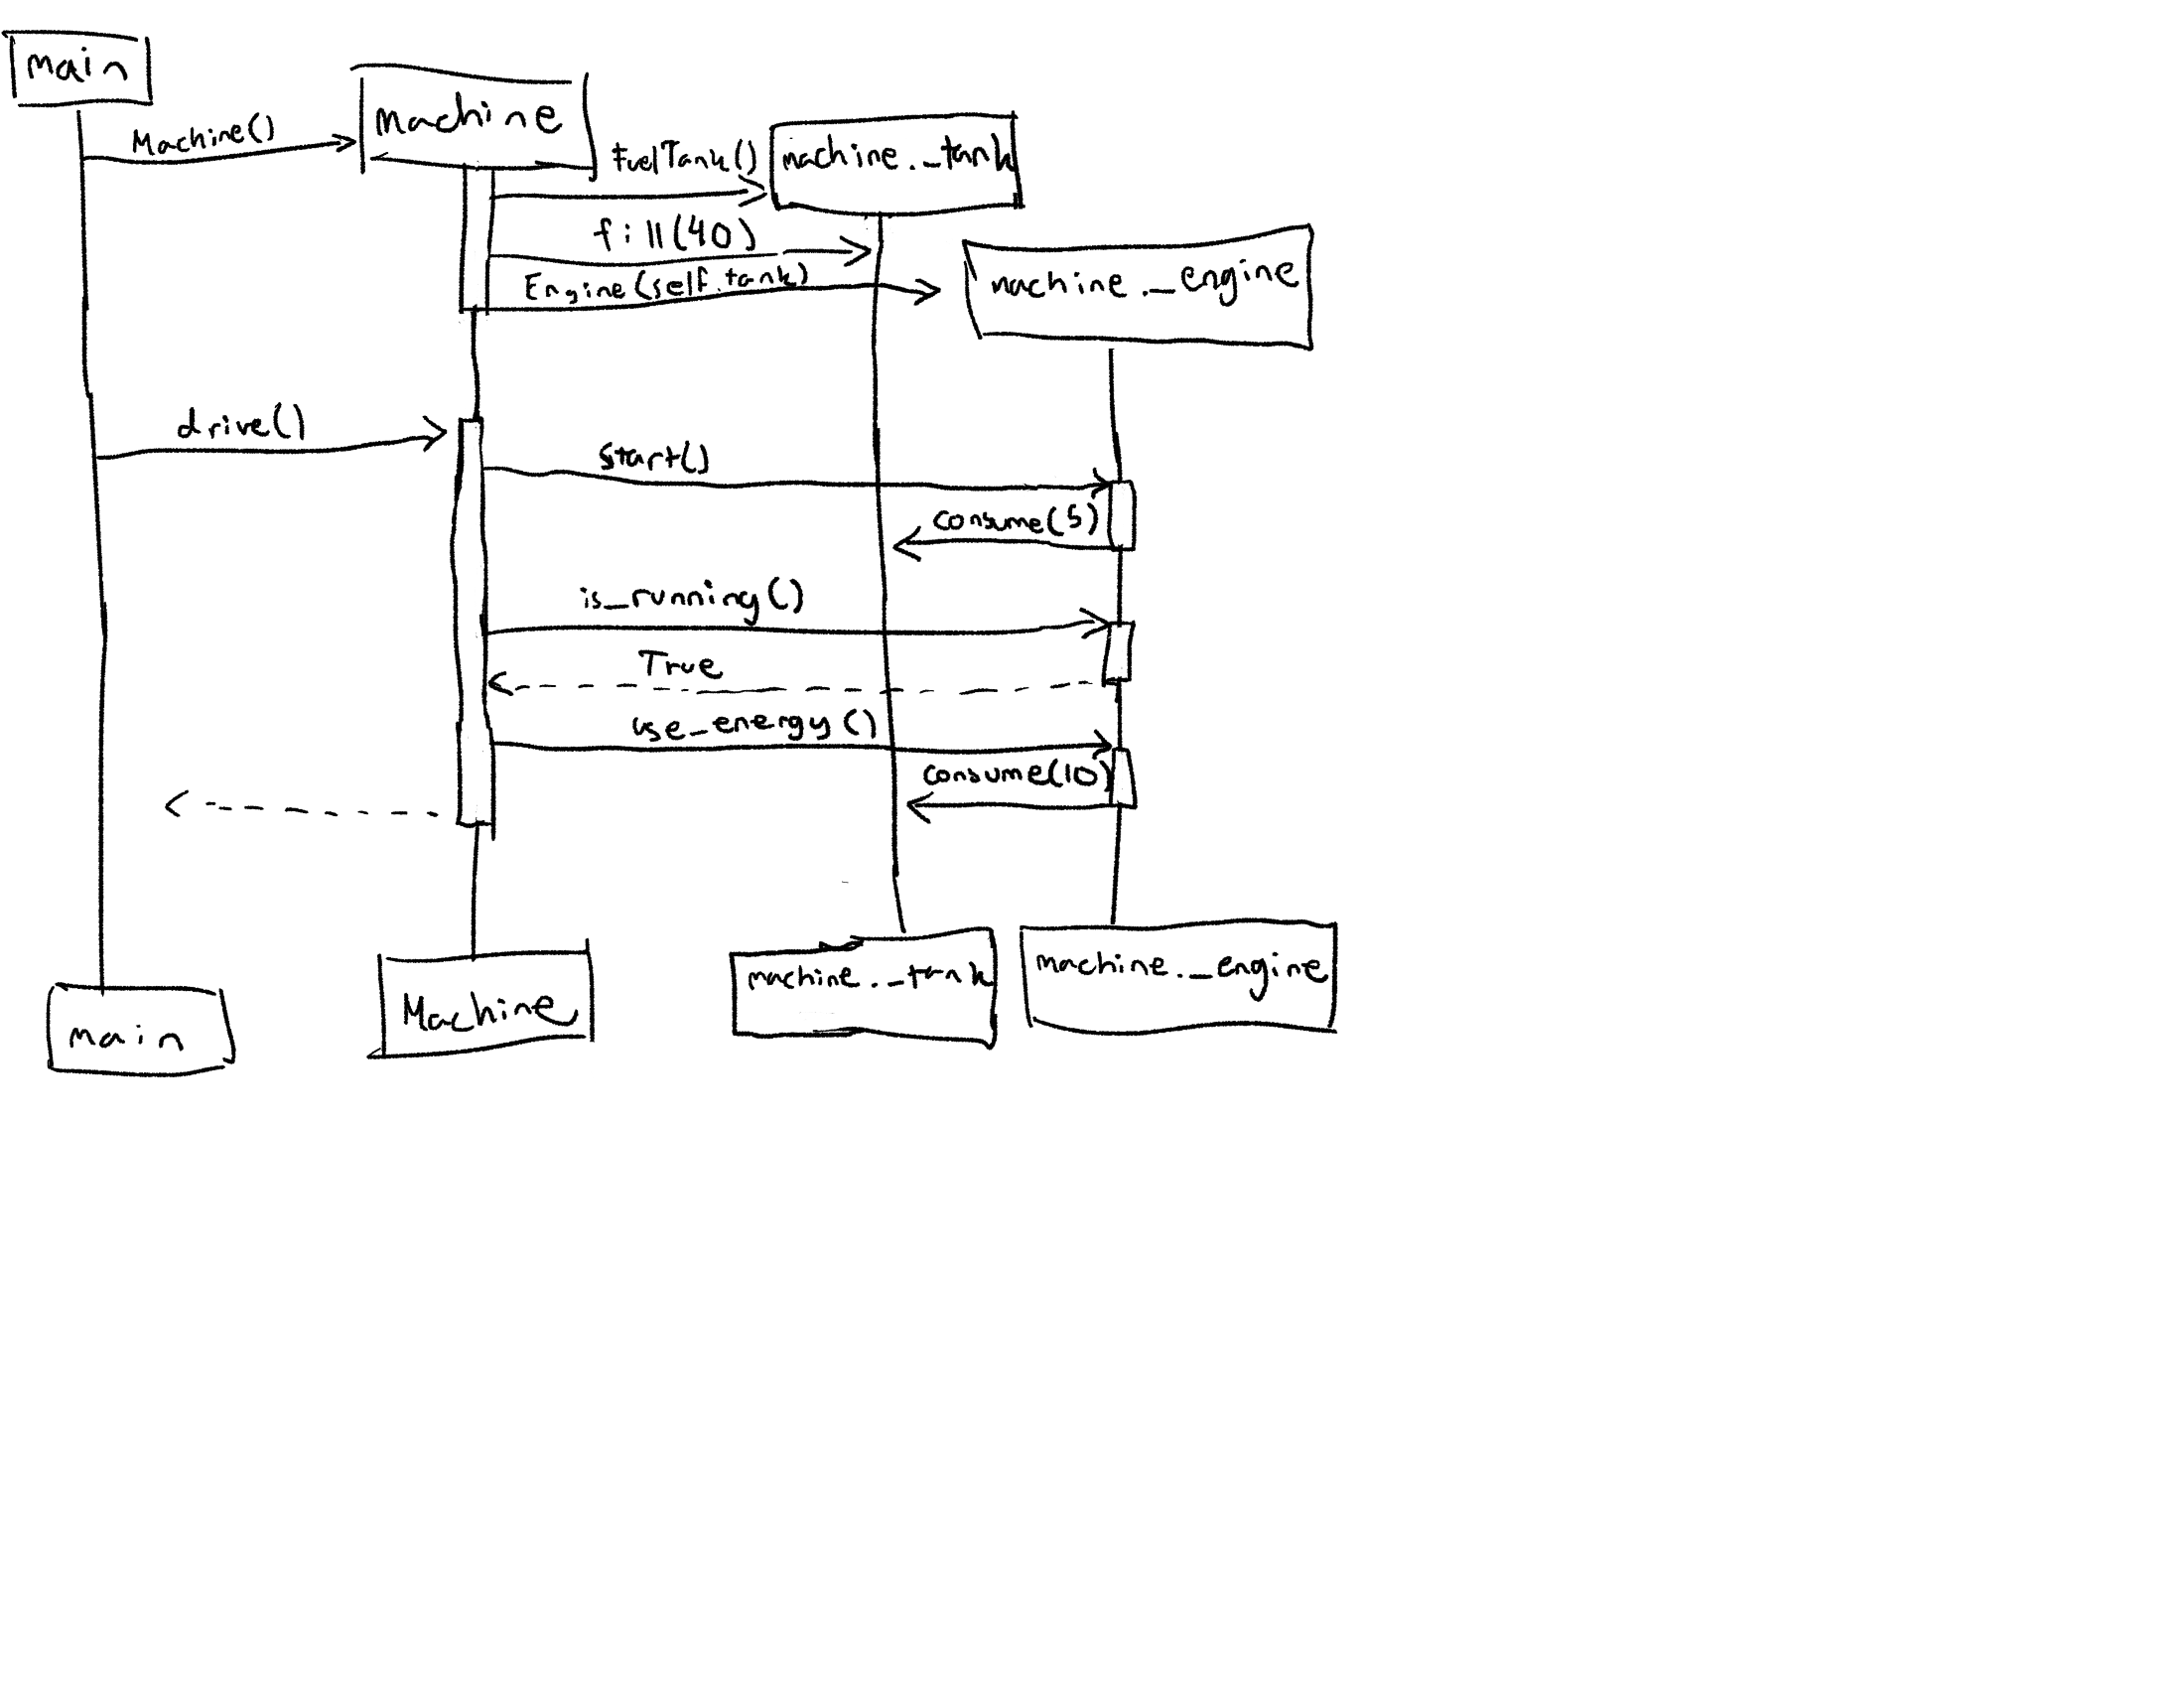 main
Machine()
machine
FuelTank()
machine._tank
fill(40)
Engine(self.tank)
machine._engine
drive()
start()
consume(5)
is_running()
True
use_energy()
consume(10)
main
Machine
machine._tank
machine._engine